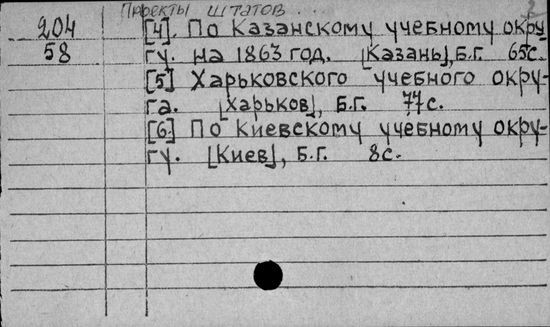 Проекты штатов... 2
204 [4]. По Казанскому учебному окру
58 гу. на 1863 год. [Казань], Б.Г. 65с.
[5] Харьковского учебного окру-
га. [Харьков], Б.Г. 77с.
[6] По Киевскому учебному окру-
гу. [Киев], Б.Г. 8с.